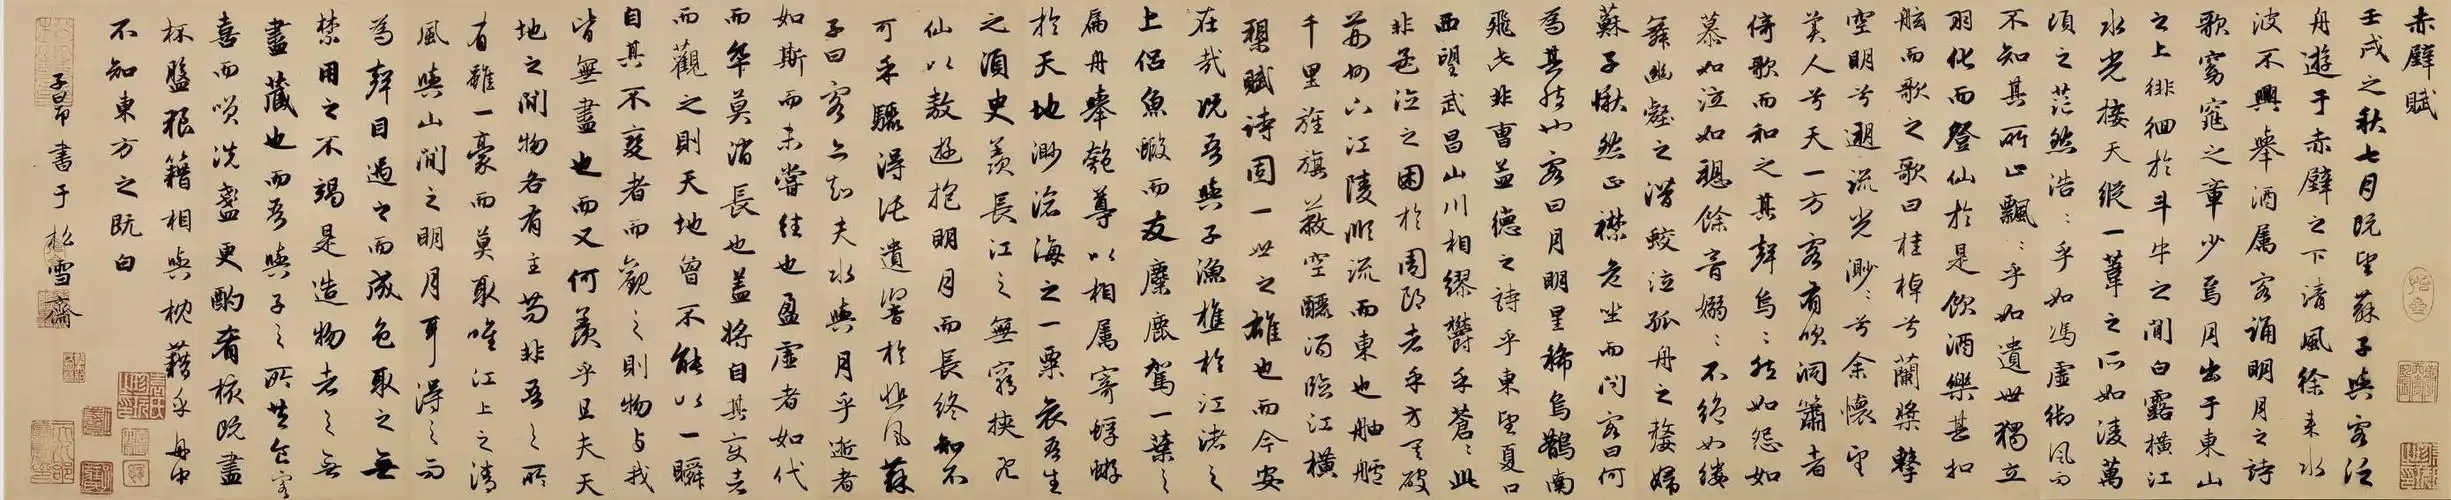 赤壁賦
壬戌之秋七月既望蘇子與客泛
舟遊于赤壁之下清風徐來水
波不興舉酒属客誦明月之詩
歌窈窕之章少焉月出于東山
之上徘徊於斗牛之間白露橫江
水光接天縱一葦之所如淩萬
頃之茫然浩〻乎如馮虛御風而
不知其所止飄〻乎如遺世獨立
羽化而登仙於是飲酒樂甚扣
舷而歌之歌曰桂棹兮蘭槳擊
空明兮遡流光渺〻兮余懷望
美人兮天一方客有吹洞簫者
倚歌而和之其聲烏〻然如怨如
慕如泣如訴餘音嫋〻不絕如縷
舞幽壑之潛蛟泣孤舟之嫠婦
蘇子愀然正襟危坐而問客曰何
為其然也客曰月明星稀烏鵲南
飛此非曹孟德之詩乎東望夏口
西望武昌山川相繆欝乎蒼〻此
非孟德之困於周郎者乎方其破
荊州下江陵順流而東也舳艫
千里旌旗蔽空釃酒臨江橫
槊賦詩固一世之雄也而今安
在哉況吾與子漁樵於江渚之
上侶魚蝦而友麋鹿駕一葉之
扁舟舉匏尊以相属寄蜉蝣
於天地渺滄海之一粟哀吾生
之須臾羨長江之無窮挾飛
仙以敖遊抱明月而長終知不
可乎驟得託遺響於悲風蘇
子曰客亦知夫水與月乎逝者
如斯而未嘗往也盈虛者如代
而卒莫消長也蓋將自其變者
而觀之則天地曾不能以一瞬
自其不變者而觀之則物与我
皆無盡也而又何羨乎且夫天
地之間物各有主苟非吾之所
有雖一豪而莫取唯江上之清
風與山間之明月耳得之而
為聲目遇之而成色取之無
禁用之不竭是造物者之無
盡藏也而吾與子之所共食客
喜而笑洗盞更酌肴核既盡
杯盤狼籍相與枕藉乎舟中
不知東方之既白
子昂書于松雪齋